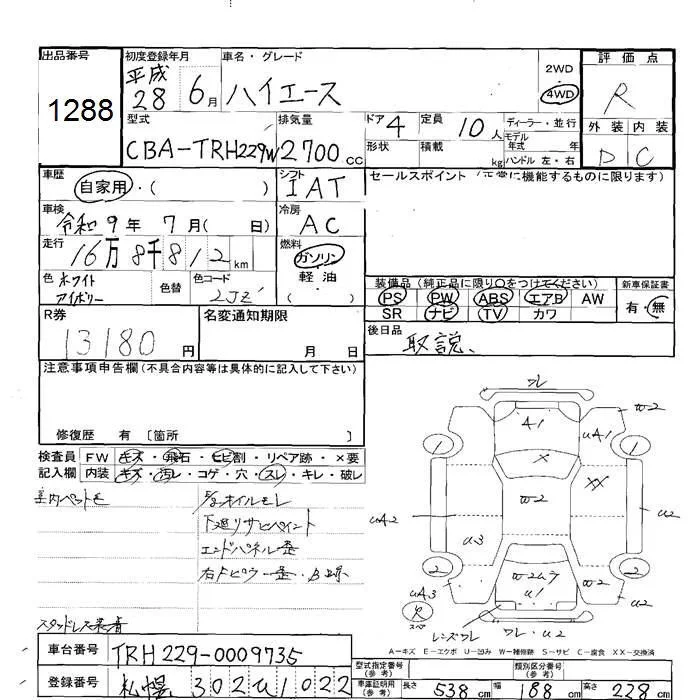 出品番号 初度登録年月 車名・グレード 2WD 評価点
1288 平成28 6月 ハイエース 4WD R
型式 排気量 ドア 4 定員 10人 ディーラー・並行 外装 内装
CBA-TRH229W 2700cc 形状 積載 kg モデル年式 年 D C
ハンドル 左・右
車歴 自家用・( ) シフト IAT セールスポイント (正常に機能するものに限ります)
車検 令和9年7月( 日) 冷房 AC
走行 16万8千812km 燃料 ガソリン・軽油
色 ホワイト アイボリー 色替 色コード 2JZ
装備品 (純正品に限り○をつけてください) 新車保証書
PS PW ABS エアB AW 有・無
SR ナビ TV カワ
R券 13180円 名変通知期限 月 日 後日品 取説、
注意事項申告欄 (不具合内容等は具体的に記入して下さい)
修復歴 有 〔箇所 〕
検査員 FW キズ・飛石・ヒビ割・リペア跡・×要
記入欄 内装 キズ・汚レ・コゲ・穴・スレ・キレ・破レ
オイルモレ
下廻りサビペイント
エンドパネル歪
スタッドレス装着
ワレ
A1 W2
1 uA1 1
X XX
W2
uA2 u2
u3
2 W2 2
u1
uA3 u2
R スペア
レンズワレ ワレ・u2
A=キズ E=エクボ U=凹み W=補修跡 S=サビ C=腐食 XX=交換済
車台番号 TRH229-0009735 型式指定番号(参考) 類別区分番号(参考)
登録番号 札幌 302 1022 車庫証明用(参考) 長さ 538cm 幅 188cm 高さ 228cm